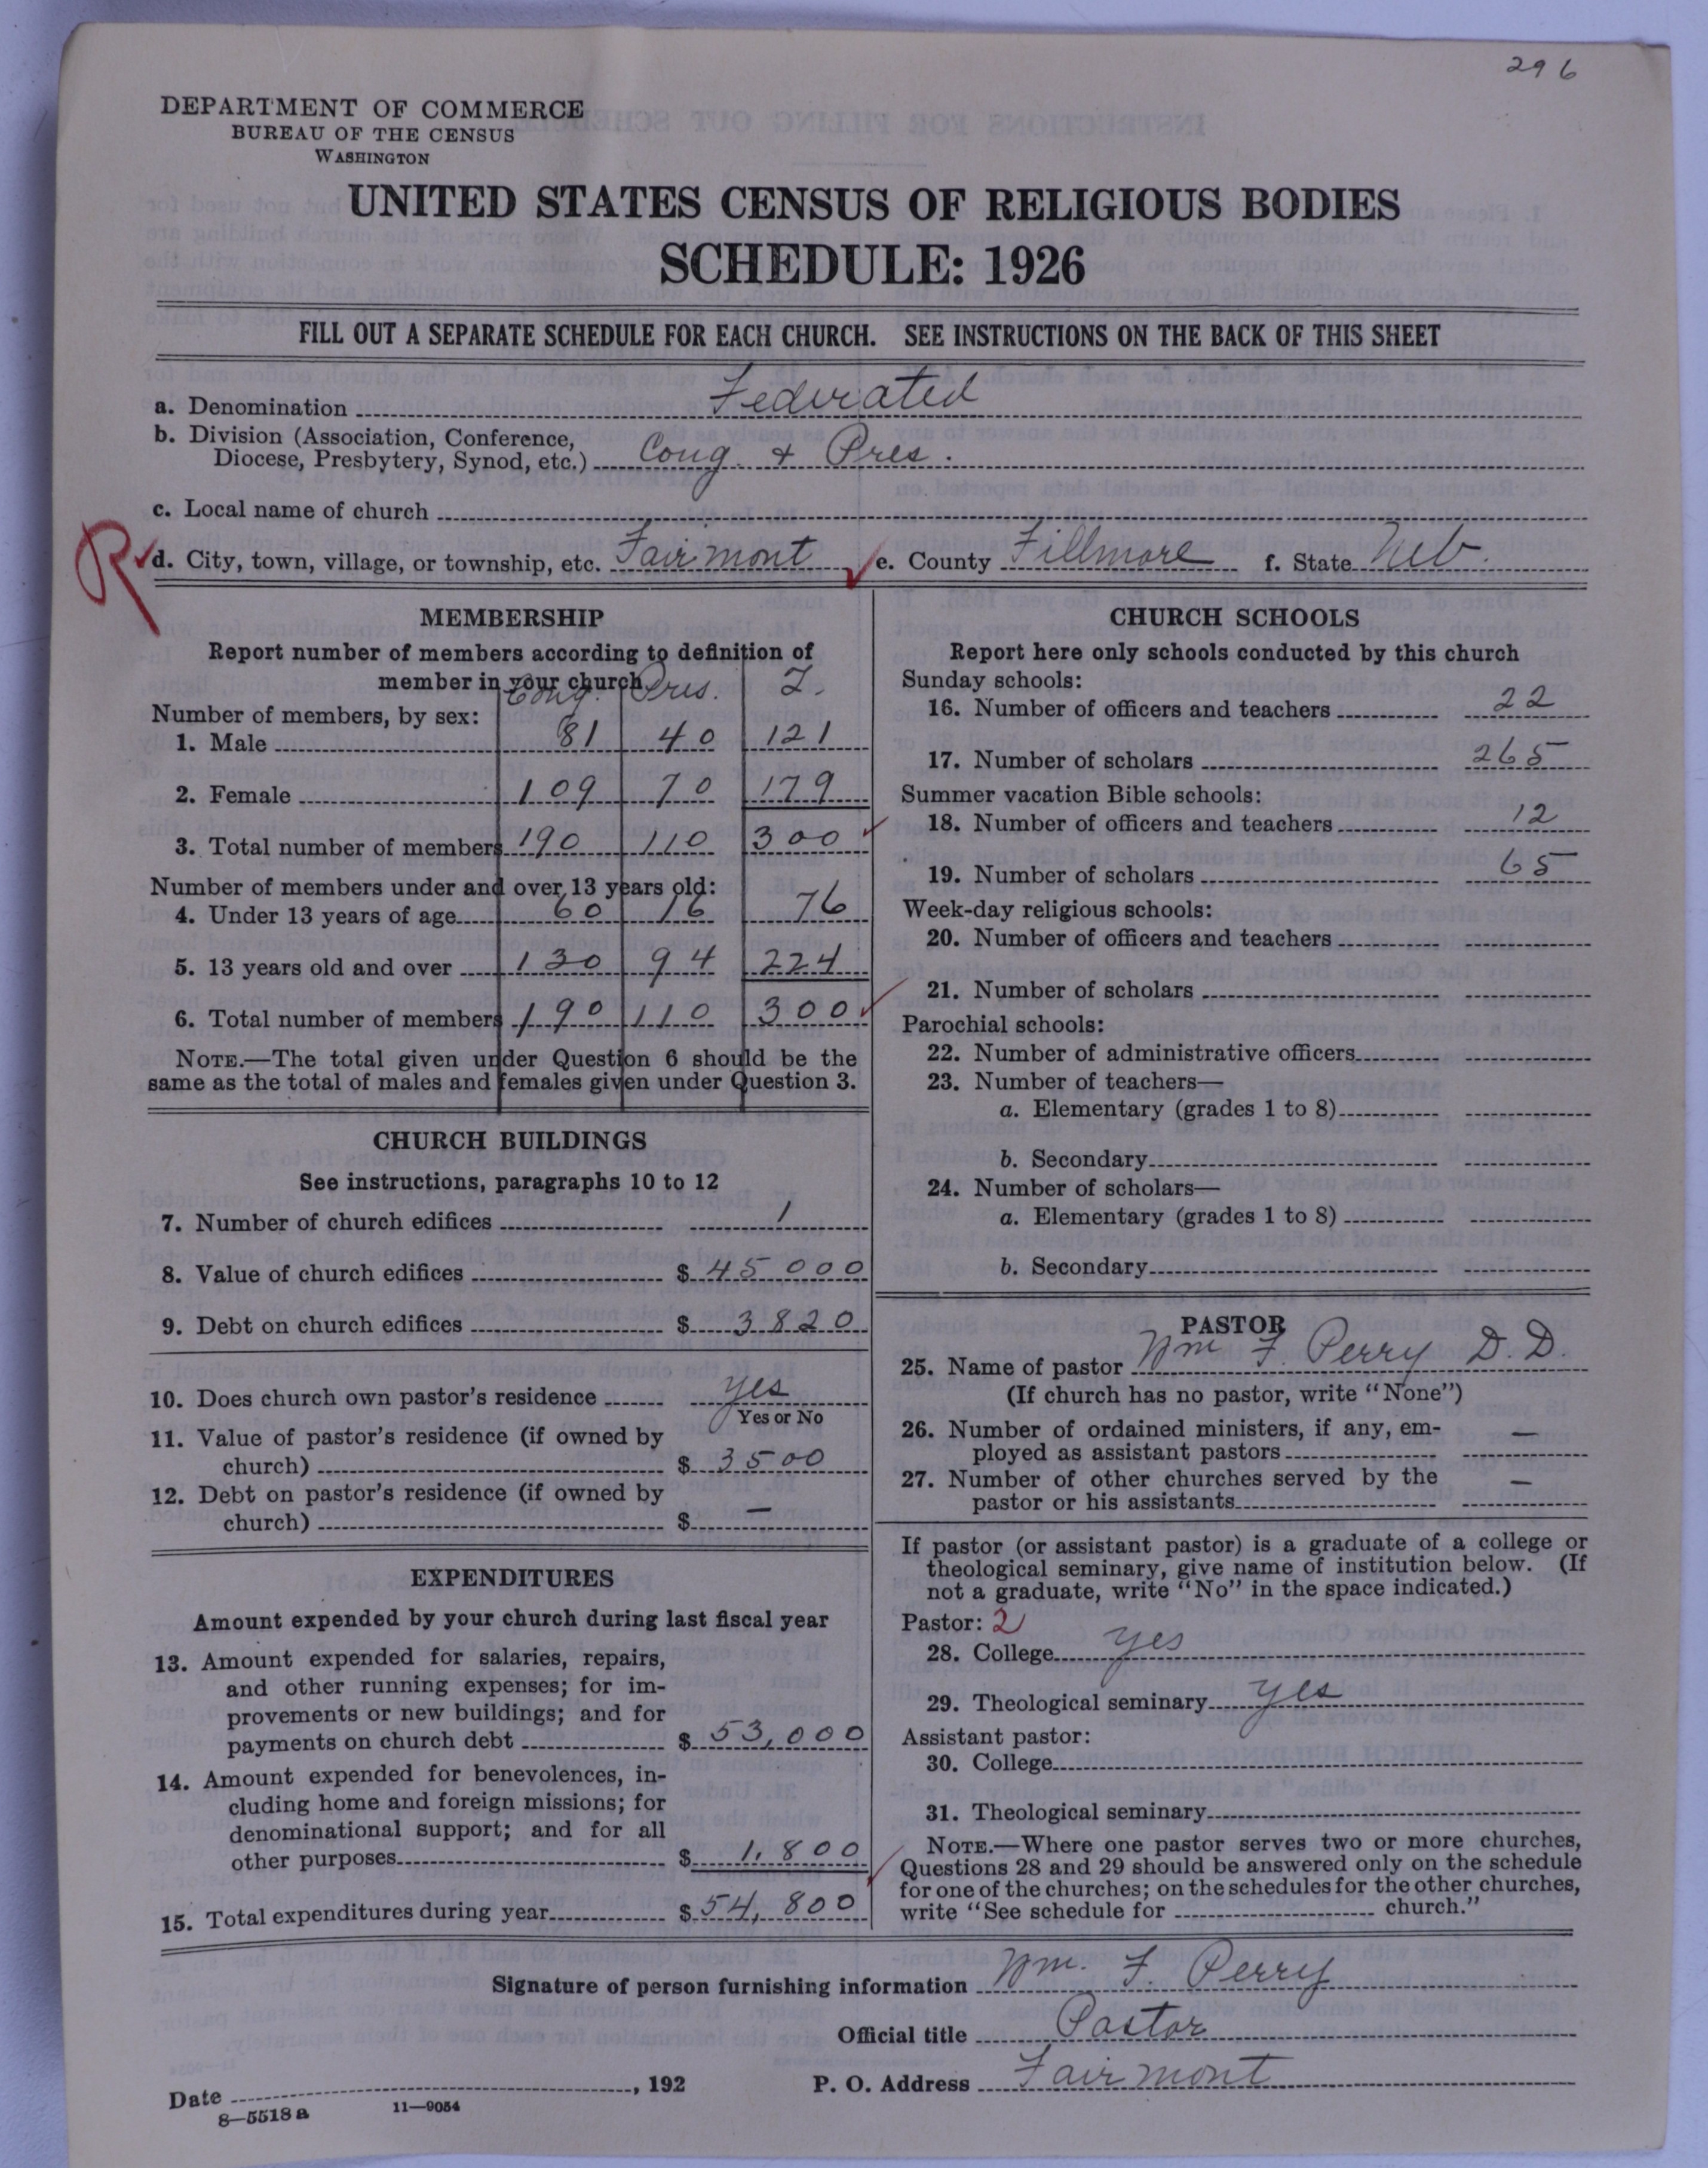 296
DEPARTMENT OF COMMERCE
BUREAU OF THE CENSUS
WASHINGTON
UNITED STATES CENSUS OF RELIGIOUS BODIES
SCHEDULE: 1926
FILL OUT A SEPARATE SCHEDULE FOR EACH CHURCH. SEE INSTRUCTIONS ON THE BACK OF THIS SHEET
a. Denomination Federated
b. Division (Association, Conference,
Diocese, Presbytery, Synod, etc.) Cong. + Pres.
c. Local name of church
R d. City, town, village, or township, etc. Fairmont e. County Fillmore f. State Neb.
MEMBERSHIP
Report number of members according to definition of
member in your church
Cong. Pres. T.
Number of members, by sex:
1. Male 81 40 121
2. Female 109 70 179
3. Total number of members 190 110 300
Number of members under and over 13 years old:
4. Under 13 years of age 60 16 76
5. 13 years old and over 130 94 224
6. Total number of members 190 110 300
NOTE.—The total given under Question 6 should be the
same as the total of males and females given under Question 3.
CHURCH BUILDINGS
See instructions, paragraphs 10 to 12
7. Number of church edifices 1
8. Value of church edifices $ 45000
9. Debt on church edifices $ 3820
10. Does church own pastor's residence yes
Yes or No
11. Value of pastor's residence (if owned by
church) $ 3500
12. Debt on pastor's residence (if owned by
church) $ —
EXPENDITURES
Amount expended by your church during last fiscal year
13. Amount expended for salaries, repairs,
and other running expenses; for im-
provements or new buildings; and for
payments on church debt $ 53,000
14. Amount expended for benevolences, in-
cluding home and foreign missions; for
denominational support; and for all
other purposes $ 1,800
15. Total expenditures during year $ 54,800
CHURCH SCHOOLS
Report here only schools conducted by this church
Sunday schools:
16. Number of officers and teachers 22
17. Number of scholars 265
Summer vacation Bible schools:
18. Number of officers and teachers 12
19. Number of scholars 65
Week-day religious schools:
20. Number of officers and teachers
21. Number of scholars
Parochial schools:
22. Number of administrative officers
23. Number of teachers—
a. Elementary (grades 1 to 8)
b. Secondary
24. Number of scholars—
a. Elementary (grades 1 to 8)
b. Secondary
PASTOR
25. Name of pastor Wm F. Perry D.D.
(If church has no pastor, write "None")
26. Number of ordained ministers, if any, em-
ployed as assistant pastors —
27. Number of other churches served by the
pastor or his assistants —
If pastor (or assistant pastor) is a graduate of a college or
theological seminary, give name of institution below. (If
not a graduate, write "No" in the space indicated.)
Pastor: 2
28. College yes
29. Theological seminary yes
Assistant pastor:
30. College
31. Theological seminary
NOTE.—Where one pastor serves two or more churches,
Questions 28 and 29 should be answered only on the schedule
for one of the churches; on the schedules for the other churches,
write "See schedule for church."
Signature of person furnishing information Wm. F. Perry
Official title Pastor
Date , 192 P. O. Address Fairmont
8—5518a 11—9054